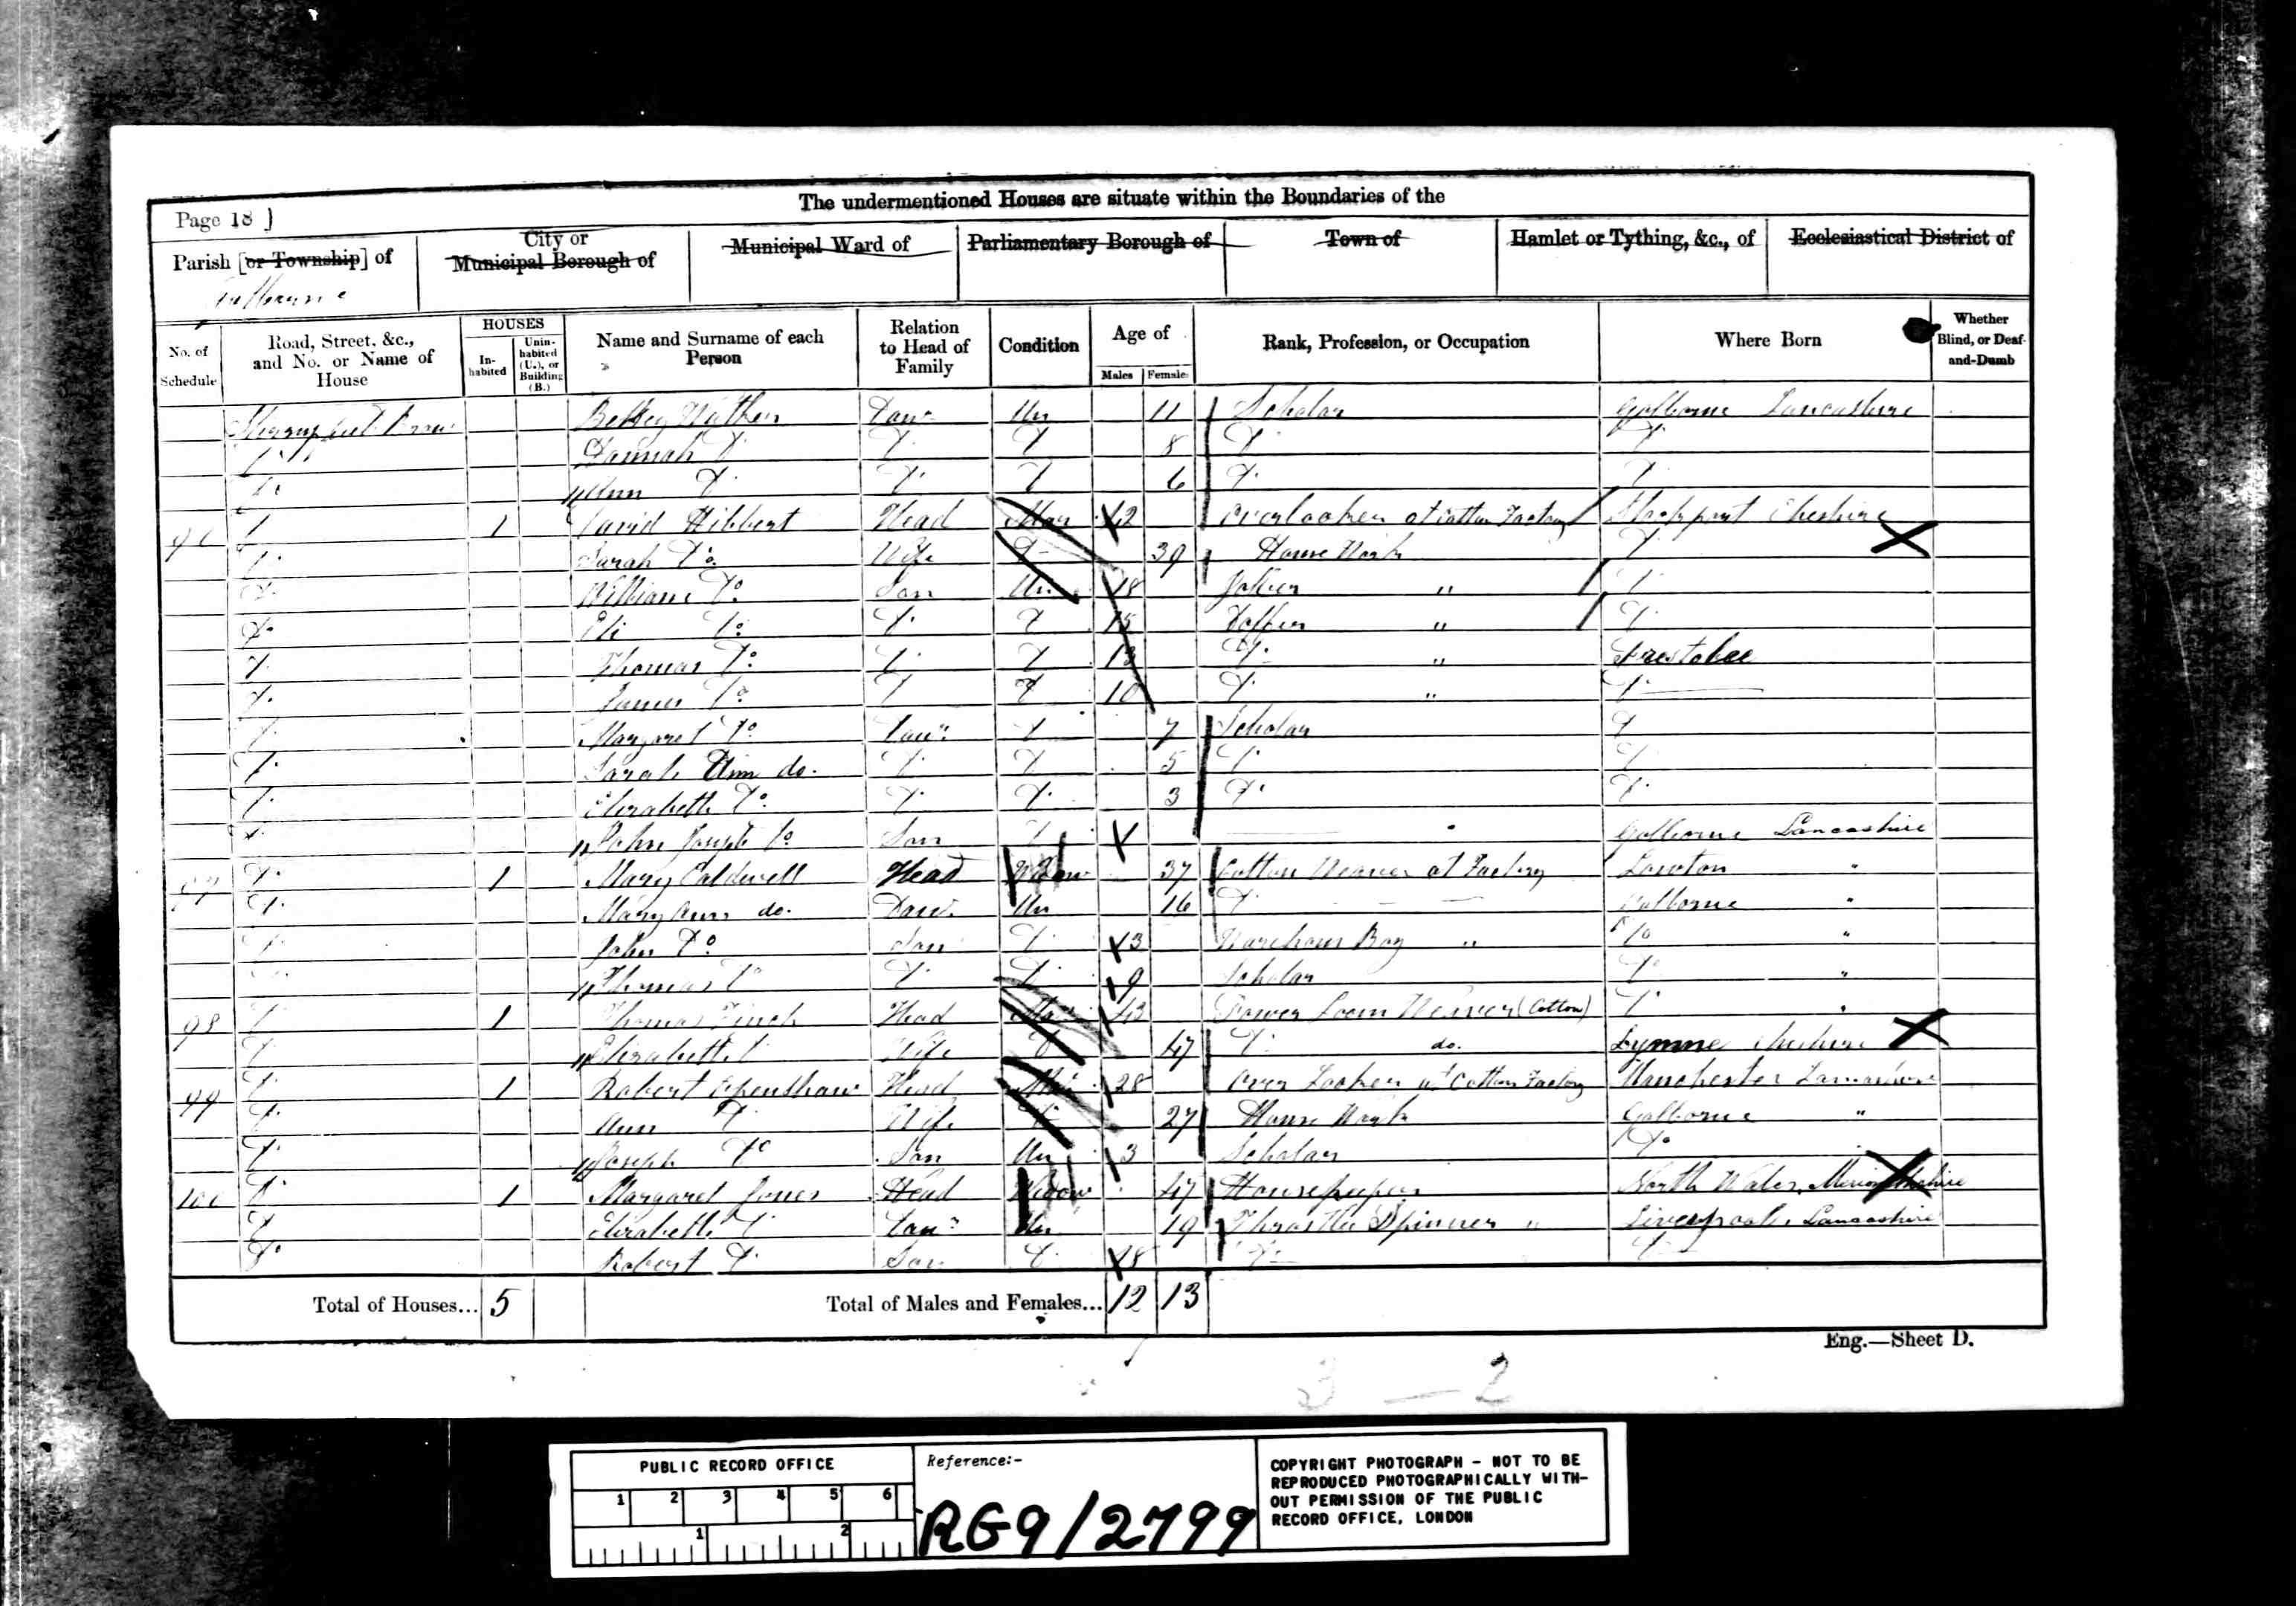 The undermentioned Houses are situate within the Boundaries of the
Page 18 ]
Parish [or Township] of
City or Municipal Borough of
Municipal Ward of
Parliamentary Borough of
Town of
Hamlet or Tything, &c., of
Ecclesiastical District of
No. of Schedule
Road, Street, &c., and No. or Name of House
HOUSES
In-habited
Unin-habited (U.), or Building (B.)
Name and Surname of each Person
Relation to Head of Family
Condition
Age of
Males
Females
Rank, Profession, or Occupation
Where Born
Whether Blind, or Deaf-and-Dumb
Betsey Dau Un 11 Scholar Golborne Lancashire
Hannah Do Do Do 8 Do Do
Ann Do Do Do 6 Do Do
96 Do 1 David Hibbert Head Mar 42 Overlooker at Cotton Factory Stockport Cheshire
Do Sarah Do Wife Do 39 House Work Do
Do William Do Son Un 18 " Do
Do Eli Do Do Do 15 Doffer " Do
Do Thomas Do Do Do 13 Do "
Do James Do Do Do 10 Do " Do
Do Margaret Do Dau Do 7 Scholar Do
Do Sarah Ann do. Do Do 5 Do Do
Do Elizabeth Do Do Do 3 Do Do
Do John Joseph Do Son Do Golborne Lancashire
97 Do 1 Mary Caldwell Head Widow 37 Cotton Weaver at Factory Lowton "
Do Mary Ann do. Dau. Un 16 Do Golborne "
Do John Do Son Do 13 Warehous Boy " Do "
Do Thomas Do Do Do 9 Scholar Do "
98 Do 1 Thomas Finch Head Mar 43 Power Loom Weaver (Cotton) Do "
Do Elizabeth Do Wife Do 47 Do do. Lymne Cheshire
99 Do 1 Robert Openshaw Head Mar 28 Over Looker at Cotton Factory Manchester Lancashire
Do Ann Do Wife Do 27 House Work Golborne "
Do Joseph Do Son Un 3 Scholar Do
100 Do 1 Margaret Jones Head Widow 47 Housekeeper North Wales
Do Elizabeth Do Dau Un 19 Throstle Spinner " Liverpool, Lancashire
Do Robert Do Son Do 18 Do Do
Total of Houses... 5
Total of Males and Females... 12 13
Eng.—Sheet D.
3 — 2
PUBLIC RECORD OFFICE
1 2 3 4 5 6
1 2
Reference:-
RG9/2799
COPYRIGHT PHOTOGRAPH - NOT TO BE
REPRODUCED PHOTOGRAPHICALLY WITH-
OUT PERMISSION OF THE PUBLIC
RECORD OFFICE, LONDON